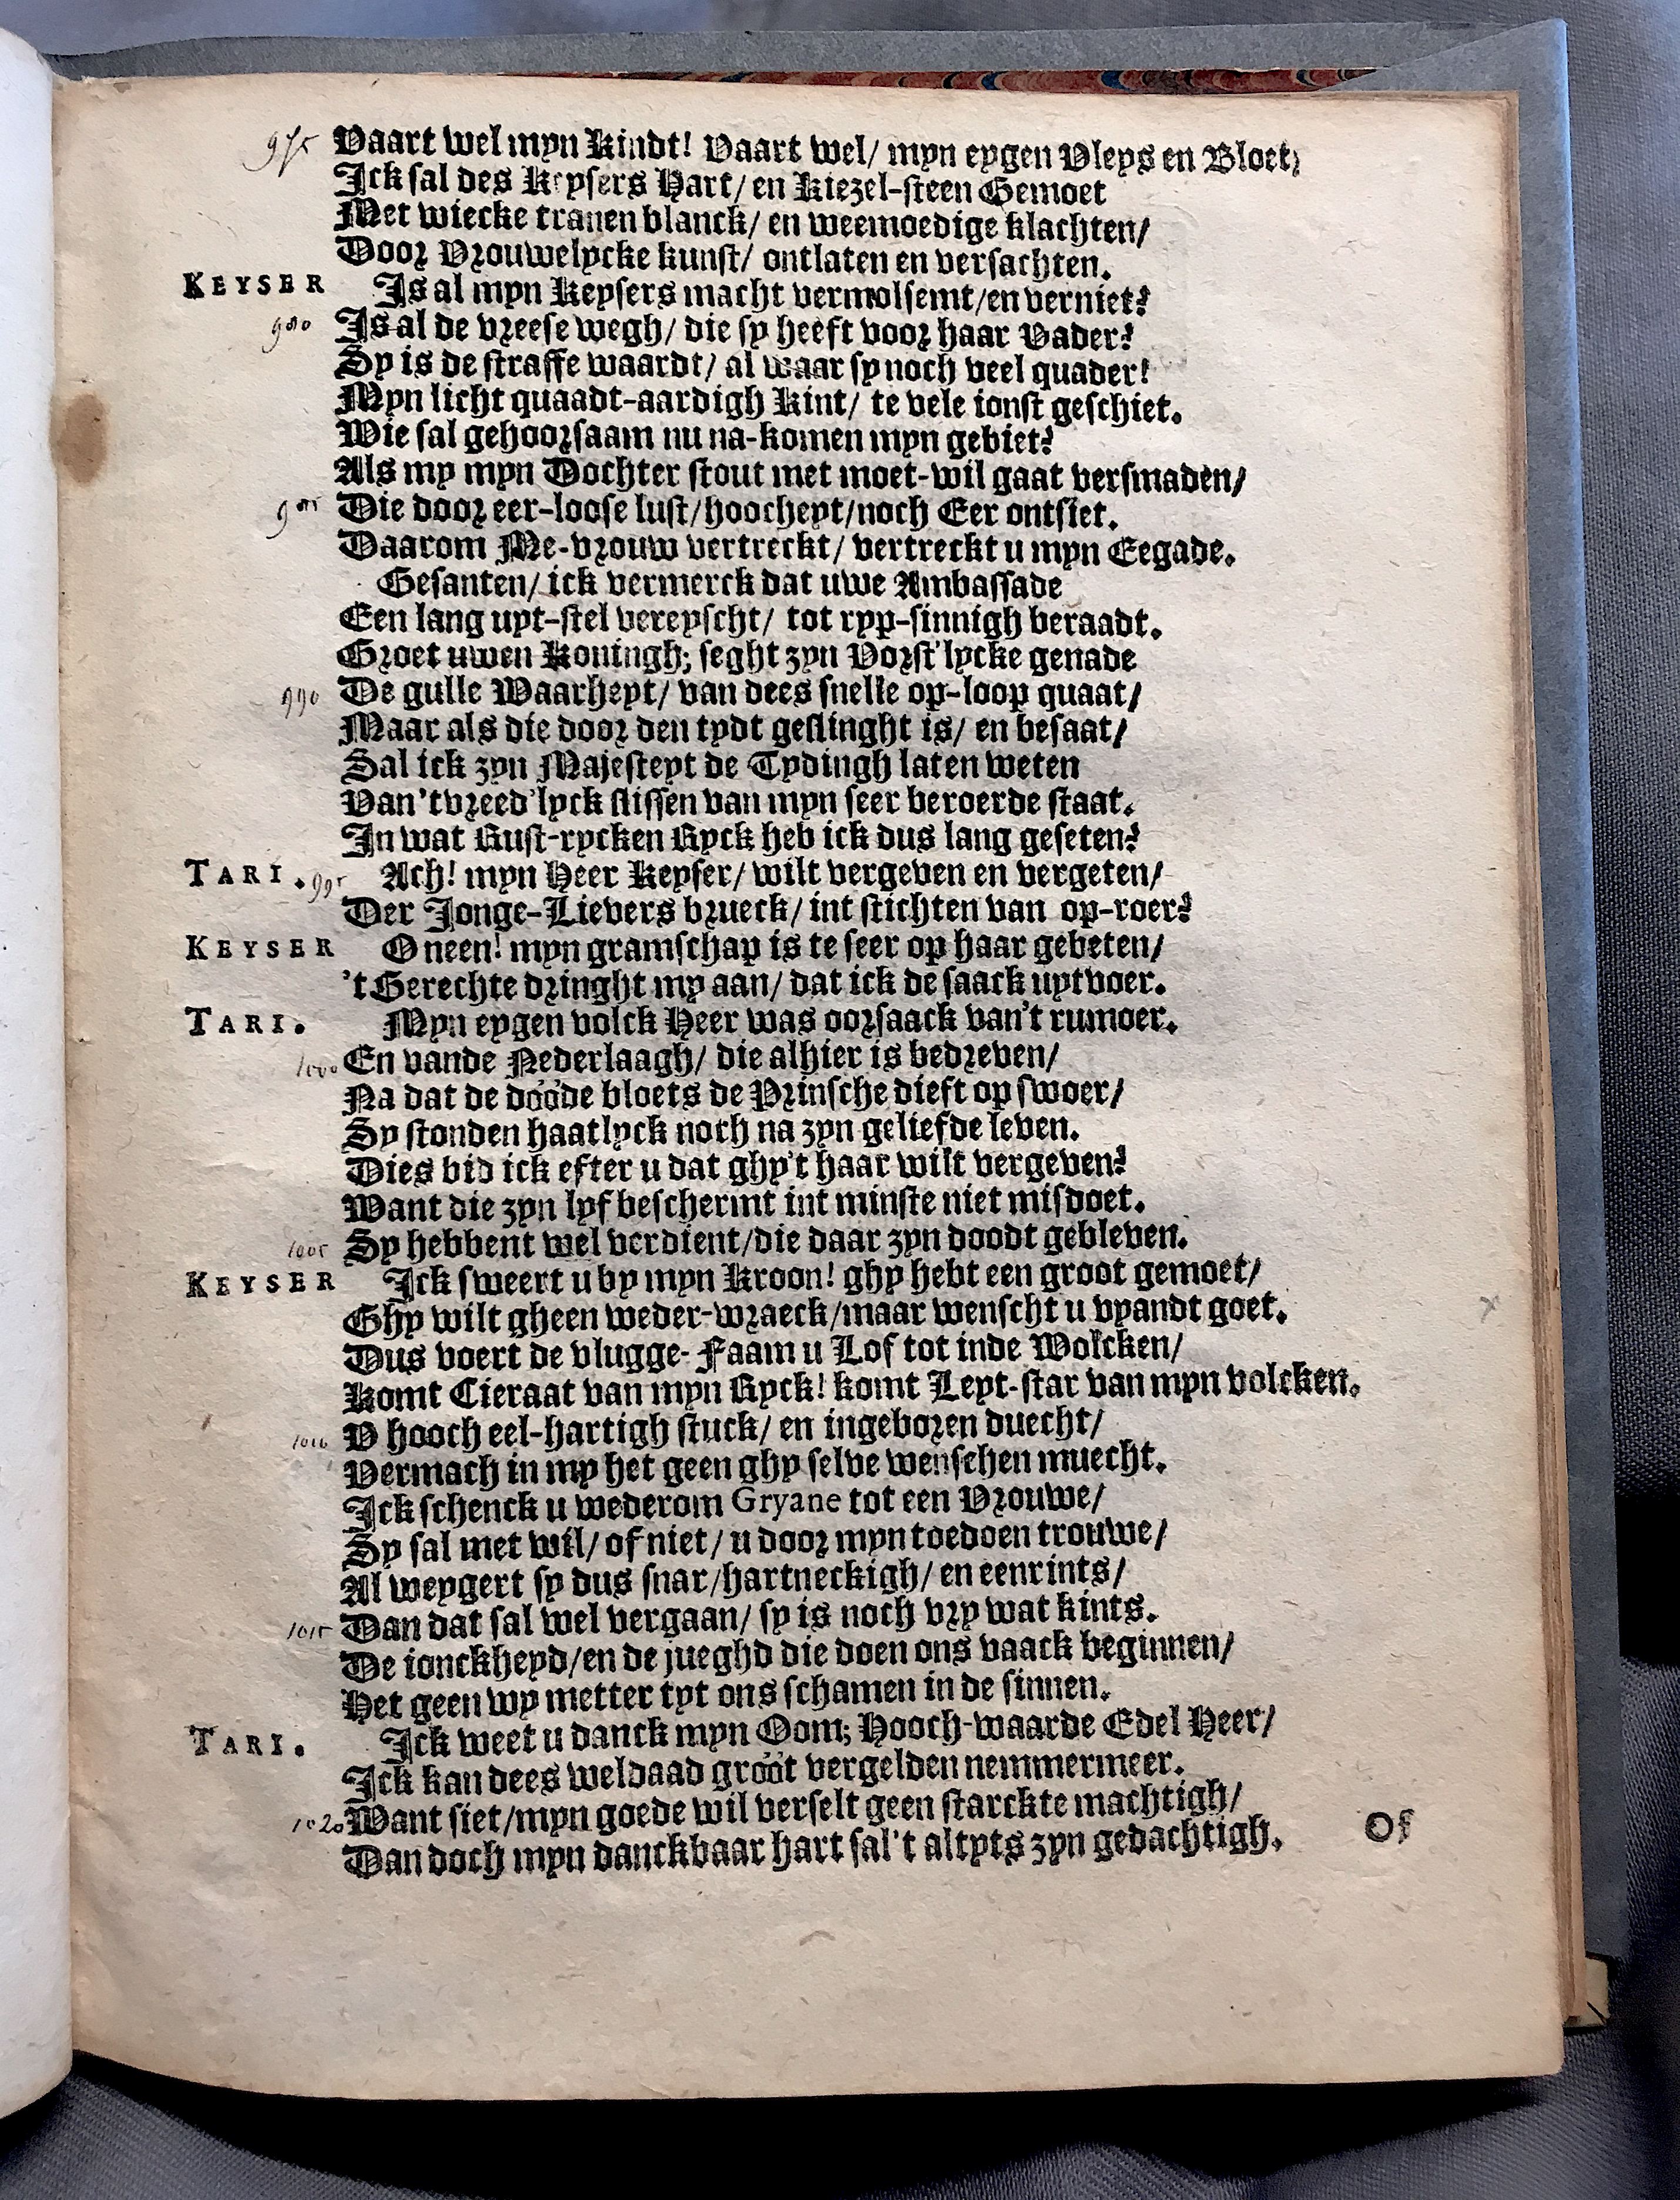 975 Vaart wel myn Kindt! Vaart wel/ myn eygen Vleys en Bloet/
Ick sal des Keysers Hart/ en Kiezel-steen Gemoet
Met wiecke tranen blanck/ en weemoedige klachten/
Door Vrouwelycke kunst/ ontlaten en versachten.
KEYSER Is al myn Keysers macht vermolsemt/en verniet?
980 Is al de vreese wegh/ die sy heeft voor haar Vader?
Sy is de straffe waardt/ al waar sy noch veel quader!
Myn licht quaadt-aardigh Kint/ te vele ionst geschiet.
Wie sal gehoorsaam nu na-komen myn gebiet?
Als my myn Dochter stout met moet-wil gaat versmaden/
985 Die door eer-loose lust/hoocheyt/noch Eer ontsiet.
Daarom Me-vrouw vertreckt/ vertreckt u myn Eegade.
Gesanten/ ick vermerck dat uwe Ambassade
Een lang uyt-stel vereyscht/ tot ryp-sinnigh beraadt.
Groet uwen Koningh; seght zyn Vorst'lycke genade
990 De gulle Waarheyt/ van dees snelle op-loop quaat/
Maar als die door den tydt geslinght is/ en besaat/
Sal ick zyn Majesteyt de Tydingh laten weten
Van 't vreed'lyck slissen van myn seer beroerde staat.
In wat Rust-rycken Ryck heb ick dus lang geseten?
TARI. 995 Ach! myn Heer Keyser/ wilt vergeven en vergeten/
Der Jonge-Lievers brueck/ int stichten van op-roer?
KEYSER O neen! myn gramschap is te seer op haar gebeten/
't Gerechte dringht my aan/ dat ick de saack uytvoer.
TARI. Myn eygen volck Heer was oorsaack van't rumoer.
1000 En vande Nederlaagh/ die alhier is bedreven/
Na dat de dööde bloets de Prinsche dieft op swoer/
Sy stonden haatlyck noch na zyn geliefde leven.
Dies bid ick efter u dat ghy't haar wilt vergeven?
Want die zyn lyf beschermt int minste niet misdoet.
1005 Sy hebbent wel verdient/die daar zyn doodt gebleven.
KEYSER Ick sweert u by myn Kroon! ghy hebt een groot gemoet/
Ghy wilt gheen weder-wraeck/maar wenscht u vyandt goet.
Dus voert de vlugge- Faam u Lof tot inde Wolcken/
Komt Cieraat van myn Ryck! komt Leyt-star van myn volcken.
1010 V hooch eel-hartigh stuck/ en ingeboren duecht/
Vermach in my het geen ghy selve wenschen muecht.
Ick schenck u wederom Gryane tot een Vrouwe/
Sy sal met wil/ of niet/ u door myn toedoen trouwe/
Al weygert sy dus snar/hartneckigh/ en eenrints/
1015 Dan dat sal wel vergaan/ sy is noch vry wat kints.
De ionckheyd/en de jueghd die doen ons vaack beginnen/
Het geen wy metter tyt ons schamen in de sinnen.
TARI. Ick weet u danck myn Oom; Hooch-waarde Edel Heer/
Ick kan dees weldaad gröôt vergelden nemmermeer.
1020 Want siet/myn goede wil verselt geen starckte machtigh/
Dan doch myn danckbaar hart sal't altyts zyn gedachtigh.
Of